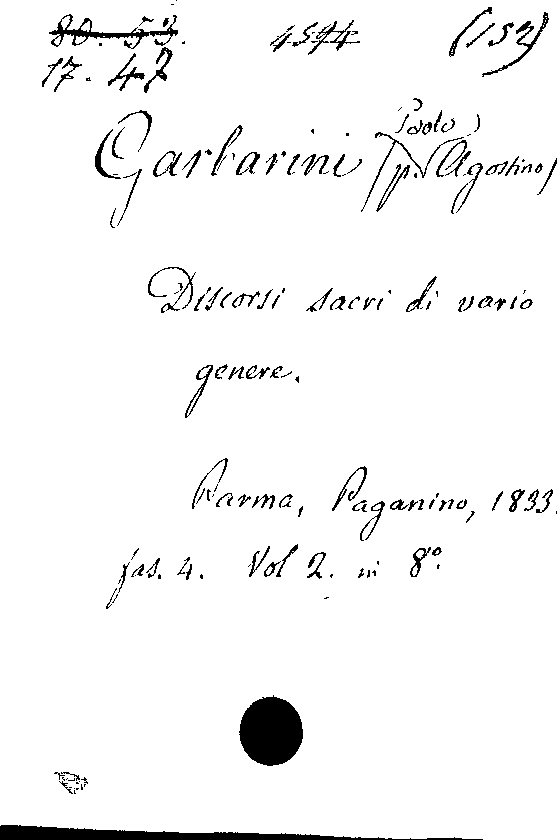 80. 53. 4594 (152)
17. 47
Paolo
Garbarini (p. Agostino)
Discorsi sacri di vario
genere.
Parma, Paganino, 1833.
fas. 4. Vol 2. in 8°.